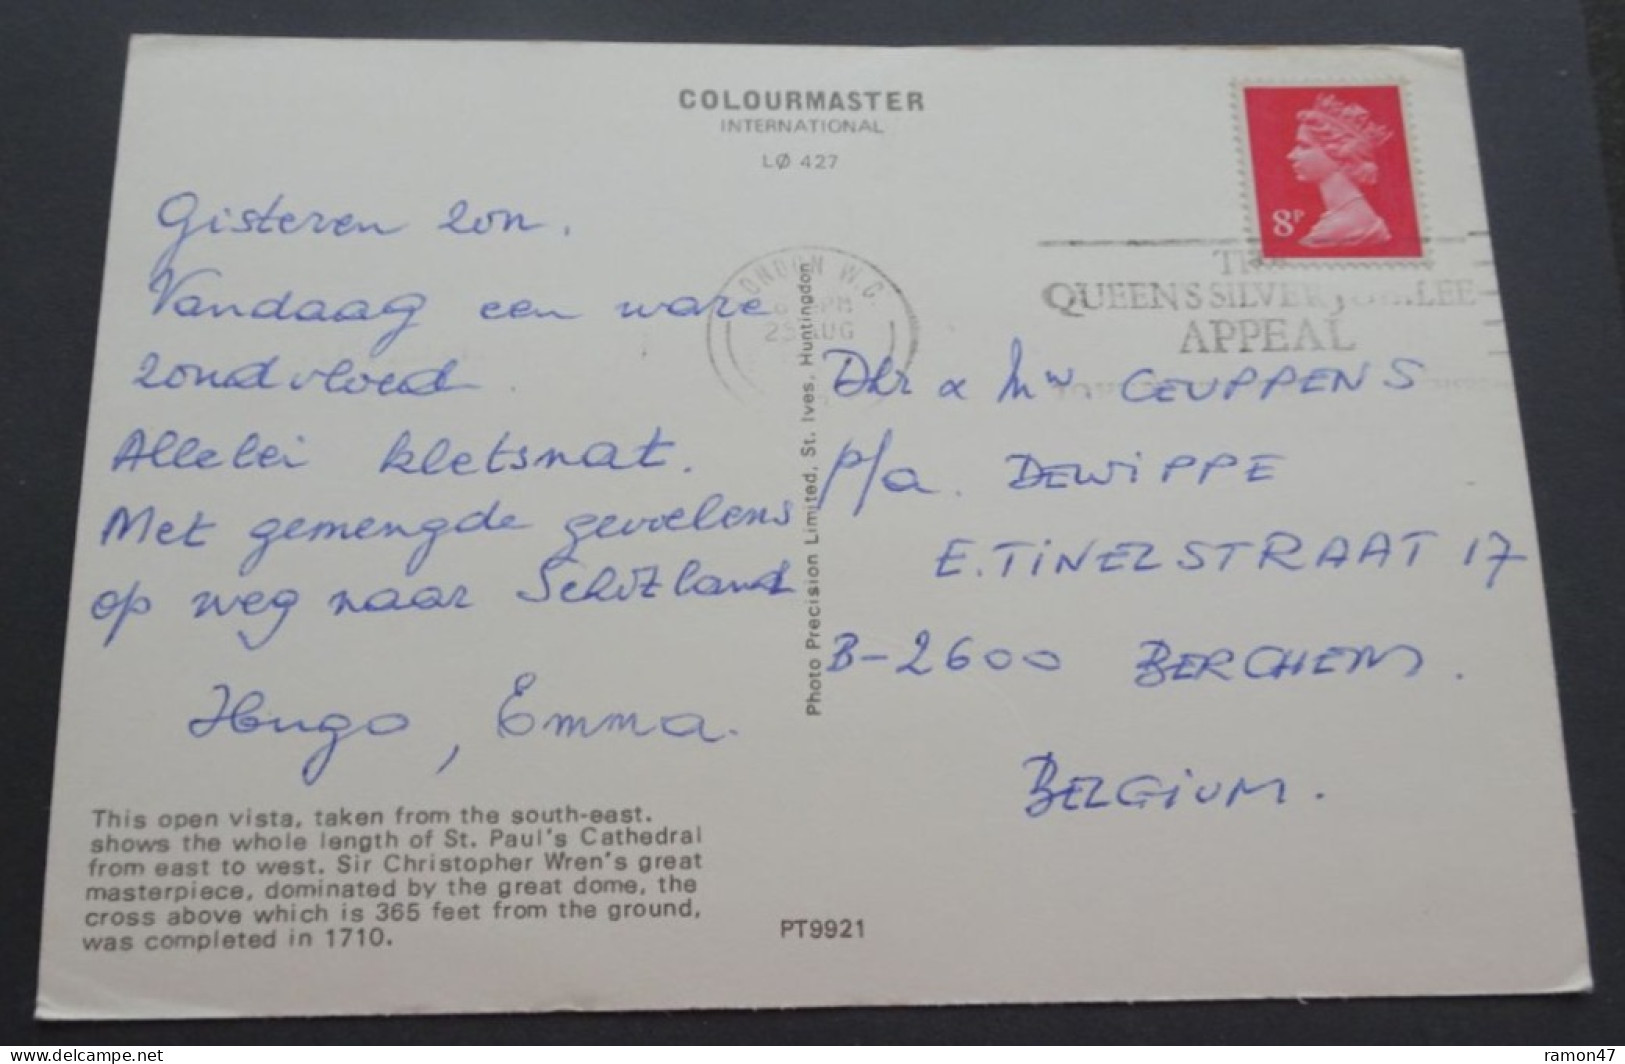 COLOURMASTER
INTERNATIONAL
LØ 427
8P
LONDON W.C.
PM
AUG
THE
QUEEN'S SILVER JUBILEE
APPEAL
Gisteren zon.
Vandaag een ware
zondvloed.
Allelei kletsnat.
Met gemengde gevoelens
op weg naar Schotland
Hugo, Emma.
Photo Precision Limited, St. Ives, Huntingdon
Dhr & Mw CEUPPENS
p/a. DEWIPPE
E. TINELSTRAAT 17
B-2600 BERCHEM.
BELGIUM.
This open vista, taken from the south-east.
shows the whole length of St. Paul's Cathedral
from east to west. Sir Christopher Wren's great
masterpiece, dominated by the great dome, the
cross above which is 365 feet from the ground,
was completed in 1710.
PT9921
https://www.delcampe.net
ramon47